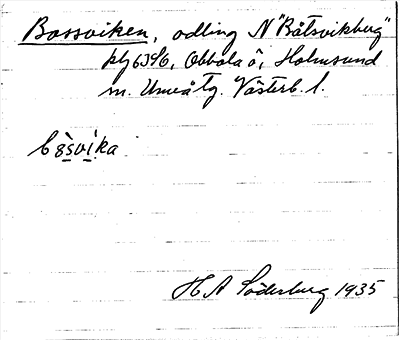 Bossviken, odling N "Båtsvikberg"
Obbola ö, Holmsund
m. Umeåtg. Västerb. l.
H A Söderberg 1935